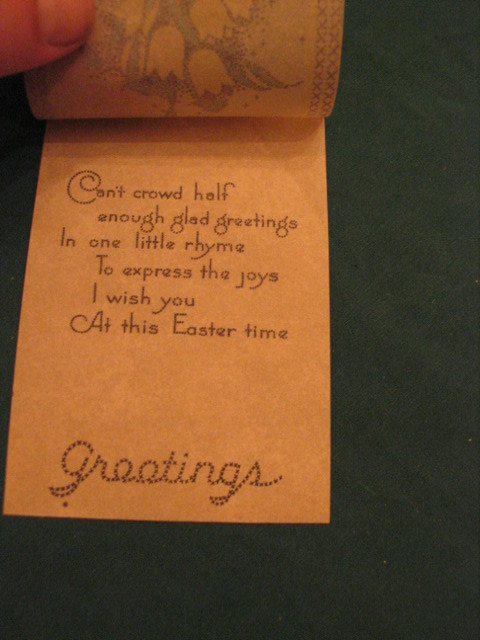 Can't crowd half
enough glad greetings
In one little rhyme
To express the joys
I wish you
At this Easter time
Greetings